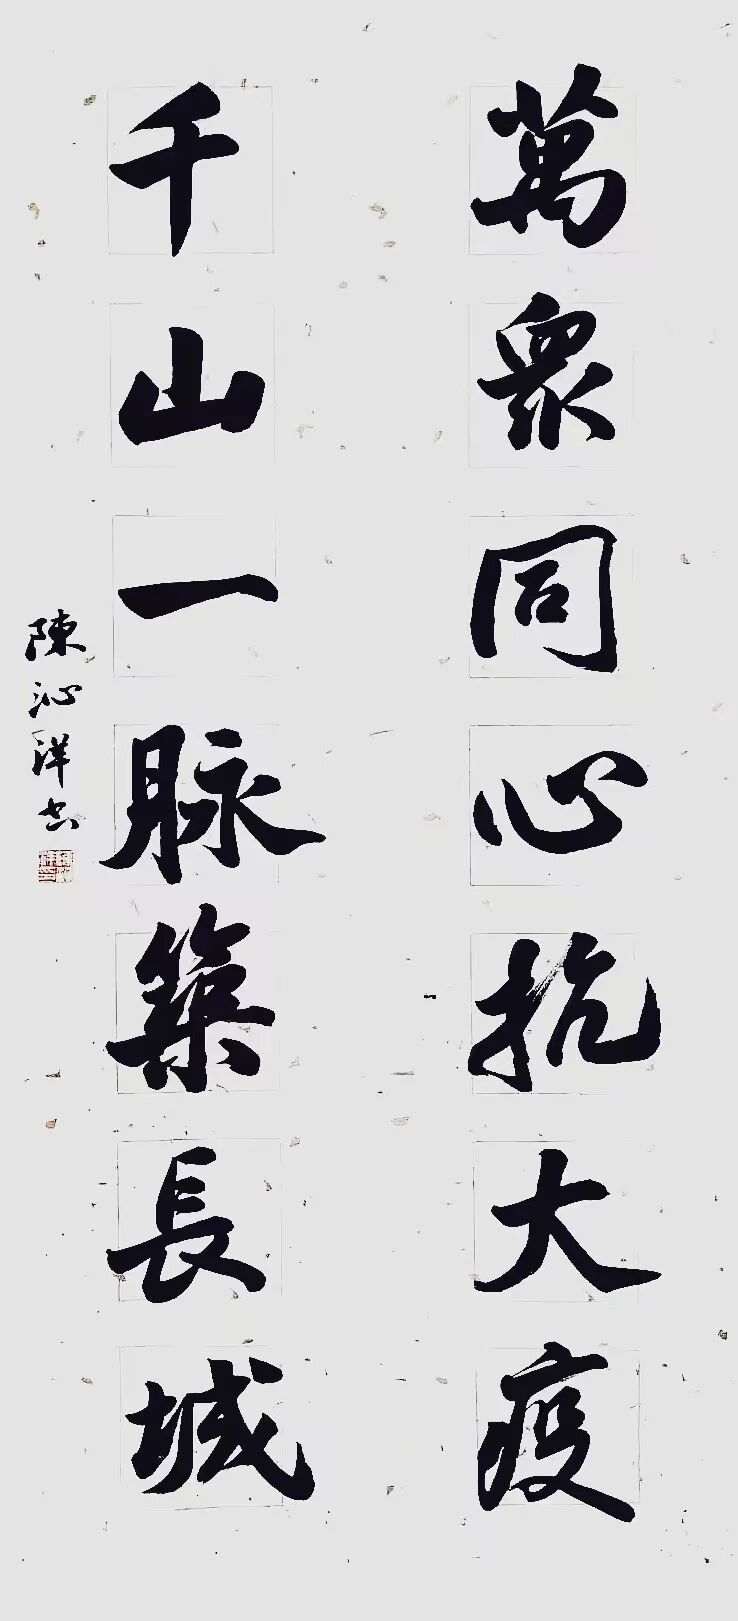 萬眾同心抗大疫
千山一脉築長城
陳沁洋书